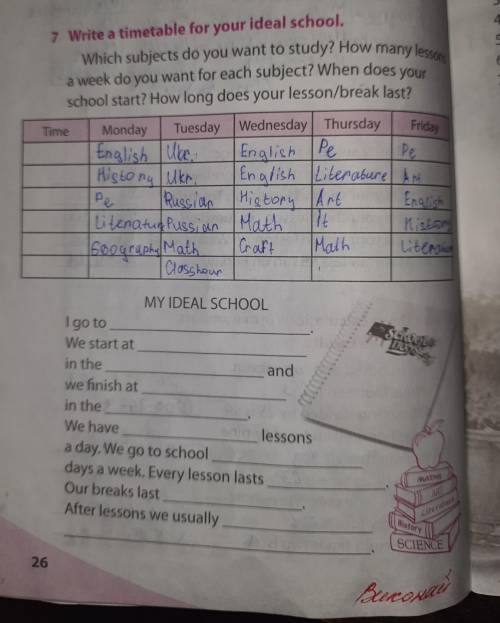 7 Write a timetable for your ideal school.
Which subjects do you want to study? How many lessons
a week do you want for each subject? When does your
school start? How long does your lesson/break last?
Time Monday Tuesday Wednesday Thursday Friday
English Ukr. English Pe Pe
History Ukr. English Literature Art
Pe Russian History Art English
Literature Russian Math It History
Geography Math Craft Math Literature
Classhour
MY IDEAL SCHOOL
I go to ____.
We start at ____
in the ____ and
we finish at ____
in the ____.
We have ____ lessons
a day. We go to school ____
days a week. Every lesson lasts ____.
Our breaks last ____.
After lessons we usually ____
____.
MATHS
ART
Literature
History
SCIENCE
26
Виконай